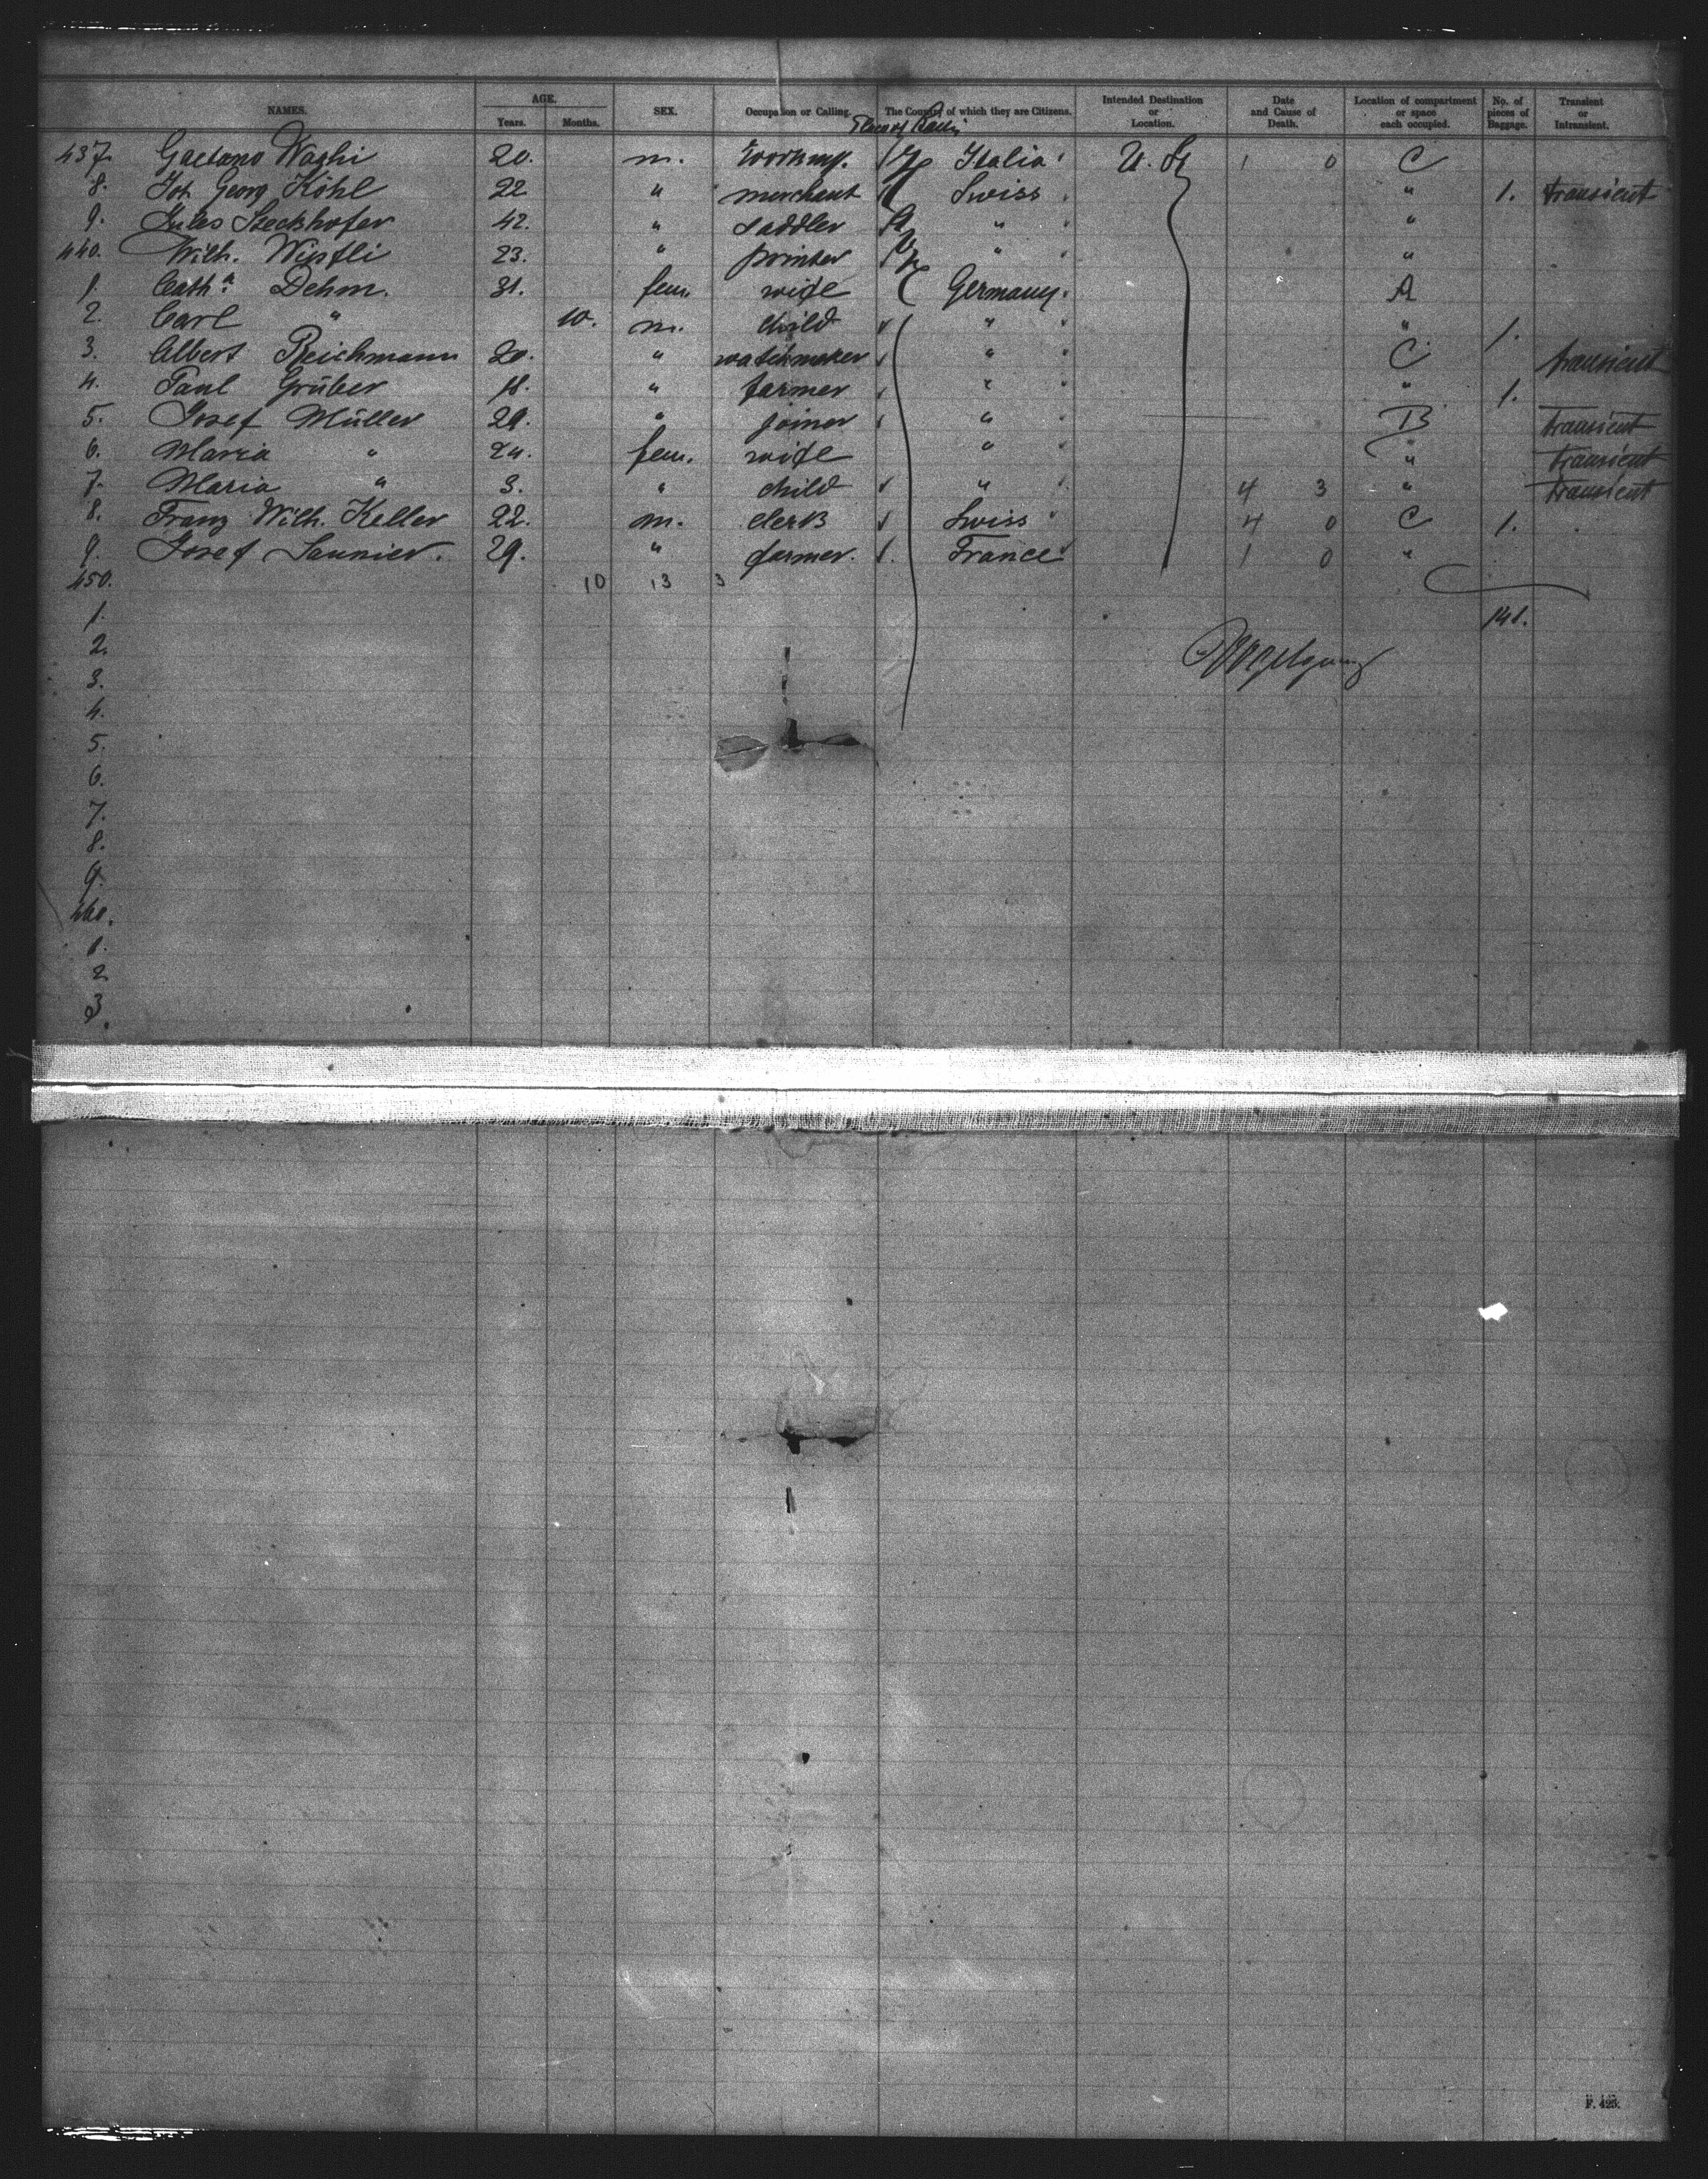 NAMES. AGE. Years. Months. SEX. Occupation or Calling. The Country of which they are Citizens. Intended Destination or Location. Date and Cause of Death. Location of compartment or space each occupied. No. of pieces of Baggage. Transient or Intransient.
437. Gaetano 20. m. Italia U. St 1 0 C
8. Joh. Georg Köhl 22 " merchant Swiss " 1. transient
9. Jules Steckhofer 42. " saddler " "
440. Wilh. Wipfli 23. " printer " "
1. Cath.a Dehm. 31. fem. wife Germany. A
2. Carl " 10. m. child " " 1.
3. Albert Reichmann 20. " watchmaker " C transient
4. Paul Grüber 18. " farmer " " 1.
5. Josef Müller 29. " joiner " B transient
6. Maria " 24. fem. wife " " transient
7. Maria " 3. " child " 4 3 " transient
8. Franz Wilh. Keller 22. m. clerk Swiss 4 0 C 1.
9. Josef Saunier. 29. " farmer. France 1 0 "
450. 10 13 3
1. 141.
2.
3.
4.
5.
6.
7.
8.
9.
460.
1.
2
3.
F. 425.